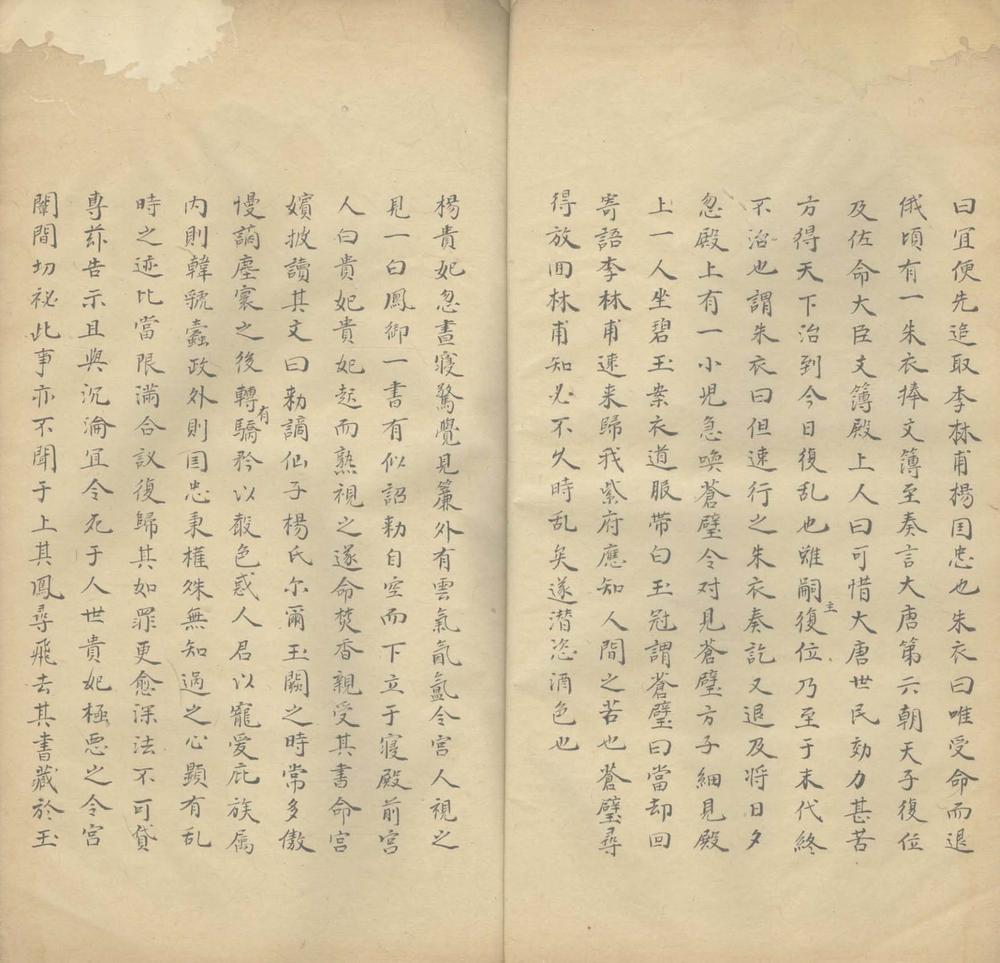 曰宜便先追取李林甫楊囯忠也朱衣曰唯受命而退
俄頃有一朱衣捧文簿至奏言大唐第六朝天子復位
及佐命大臣文簿殿上人曰可惜大唐世民効力甚苦
方得天下治到今日復乱也雖嗣主復位乃至于末代終
不治也謂朱衣曰但速行之朱衣奏訖又退及將日夕
忽殿上有一小児急喚蒼璧令对見蒼璧方子細見殿
上一人坐碧玉案衣道服帶白玉冠謂蒼璧曰當却回
寄語李林甫速来歸我紫府應知人間之苦也蒼璧尋
得放囬林甫知必不久時乱矣遂潛恣酒色也
楊貴妃忽晝寢驚覺見簾外有雲氣氤氳令宮人視之
見一白鳳御一書有似詔勅自空而下立于寢殿前宮
人白貴妃貴妃起而熟視之遂命焚香親受其書命宮
嬪披讀其文曰勅謫仙子楊氏尔爾玉闕之時常多傲
慢謫塵寰之後轉有驕矜以聲色惑人君以寵愛庇族属
内則韓虢蠹政外則囯忠秉權殊無知過之心顯有乱
時之迹比當限滿合議復歸其如罪更愈深法不可貸
專茲告示且與沉淪宜令死于人世貴妃極悪之令宮
闈間切祕此事亦不聞于上其鳳尋飛去其書藏於玉